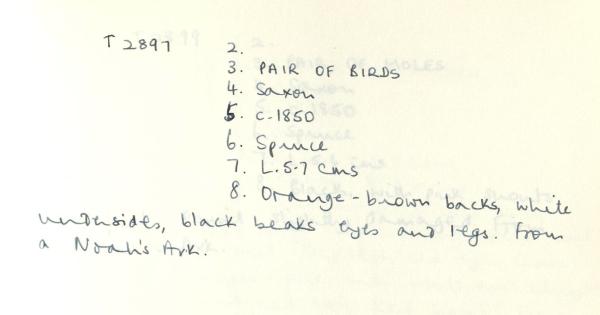 T 2897 2.
3. PAIR OF BIRDS
4. Saxon
5. C-1850
6. Spruce
7. L. 5.7 cms
8. Orange-brown backs, white
undersides, black beaks eyes and legs. From
a Noah's Ark.